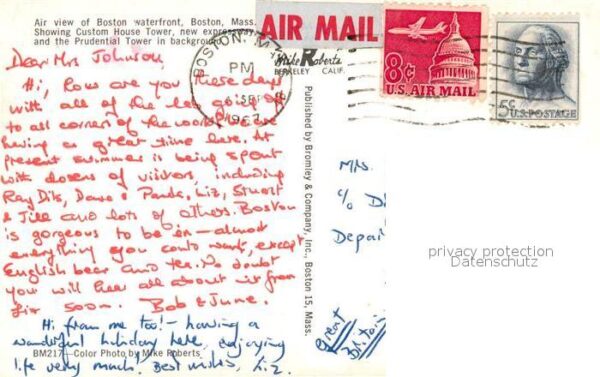 Air view of Boston waterfront, Boston, Mass.
Showing Custom House Tower, new expressway,
and the Prudential Tower in background.
AIR MAIL
Mike Roberts
BERKELEY CALIF.
BOSTON, M
PM
1967
8¢
U.S. AIR MAIL
5¢ U.S. POSTAGE
Dear Mrs Johnson,
Hi, How are you these days
with all of the lab gone off
to all corners of the world? We are
having a great time here. At
present summer is being spent
with dozens of visitors, including
Ray Dils, Dave & Paula, Liz, Stuart
& Jill and lots of others. Boston
is gorgeous to be in - almost
everything you could want, except
English beer and tea. No doubt
you will hear all about it from
Liz soon. Bob & June.
Hi from me too! - having a
wonderful holiday here, enjoying
life very much! Best wishes, Liz.
BM217-Color Photo by Mike Roberts
Published by Bromley & Company, Inc., Boston 15, Mass.
Mrs.
c/o D
Depar
Great
Britain
privacy protection
Datenschutz